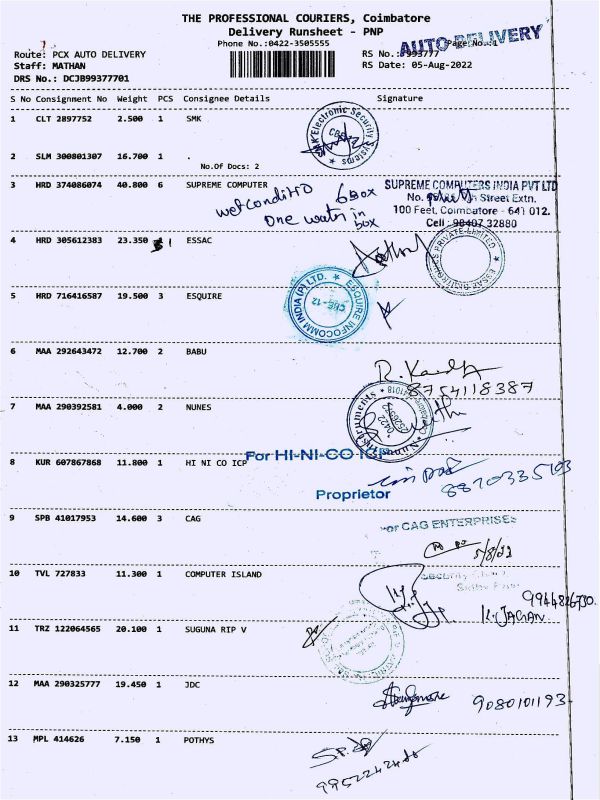 THE PROFESSIONAL COURIERS, Coimbatore
Delivery Runsheet - PNP
Phone No.:0422-3505555
AUTO DELIVERY
Route: PCX AUTO DELIVERY
Staff: MATHAN
DRS No.: DCJB99377701
RS No.:
RS Date: 05-Aug-2022
S No Consignment No Weight PCS Consignee Details Signature
1 CLT 2897752 2.500 1 SMK
Electronic Security Systems
2 SLM 300801307 16.700 1 .
No.Of Docs: 2
3 HRD 374086074 40.800 6 SUPREME COMPUTER
wet condition 6 Box
One water in box
SUPREME COMPUTERS INDIA PVT LTD
No. Street Extn.
100 Feet, Coimbatore - 641 012.
Cell : 98407 32880
4 HRD 305612383 23.350 1 ESSAC
5 HRD 716416587 19.500 3 ESQUIRE
ESQUIRE INFOCOMM INDIA (P) LTD.
CBE-12
6 MAA 292643472 12.700 2 BABU
8754118387
7 MAA 290392581 4.000 2 NUNES
Instruments
8 KUR 607867868 11.800 1 HI NI CO ICP
For HI-NI-CO ICP
Proprietor
9 SPB 41017953 14.600 3 CAG
For CAG ENTERPRISES
5/8/22
10 TVL 727833 11.300 1 COMPUTER ISLAND
K. JAGAN
11 TRZ 122064565 20.100 1 SUGUNA RIP V
12 MAA 290325777 19.450 1 JDC
9080101193
13 MPL 414626 7.150 1 POTHYS